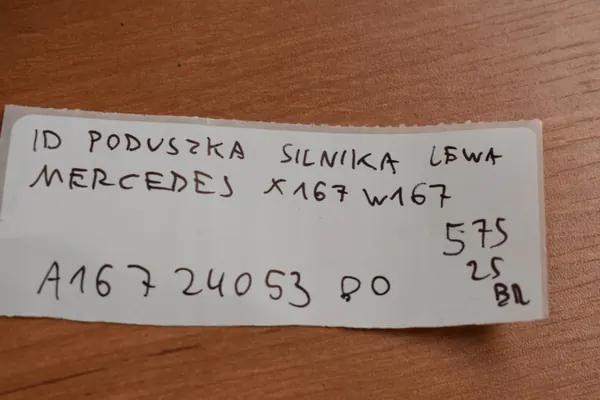 ID PODUSZKA SILNIKA LEWA
MERCEDES X167 W167
575
25
BR
A167 24053 00